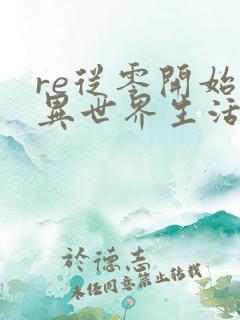 re從零開始
異世界生活
於德志
未經同意禁止轉載